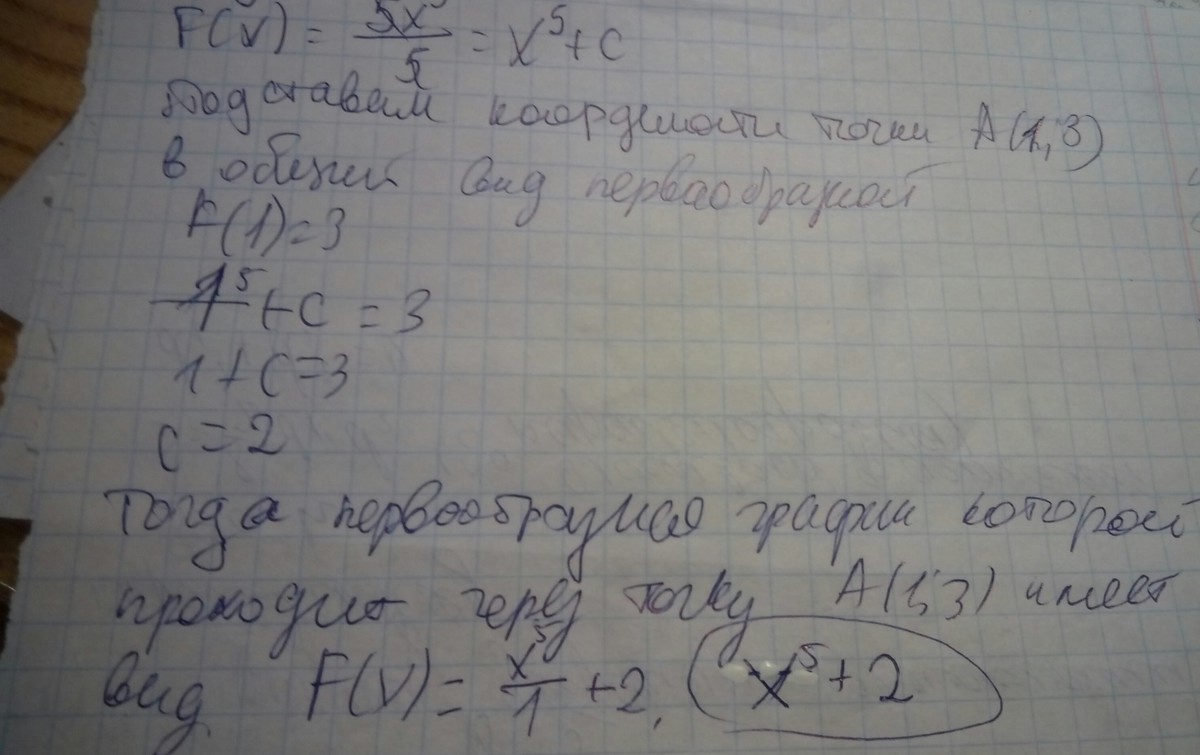 F(x) = 5x⁵/5 = x⁵ + c
Подставим координаты точки A(1; 3)
в общий вид первообразной
F(1) = 3
1⁵/1 + c = 3
1 + c = 3
c = 2
Тогда первообразная график которой
проходит через точку A(1; 3) имеет
вид F(x) = x⁵/1 + 2, x⁵ + 2